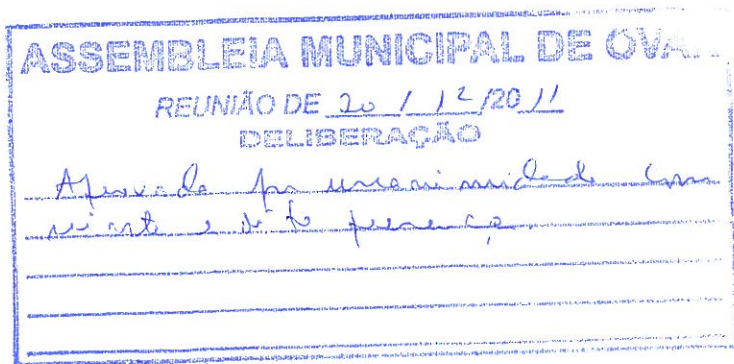 ASSEMBLEIA MUNICIPAL DE OVA
REUNIÃO DE 20 / 12 /20 11
DELIBERAÇÃO
Aprovada por unanimidade com
vinte e oito presenças